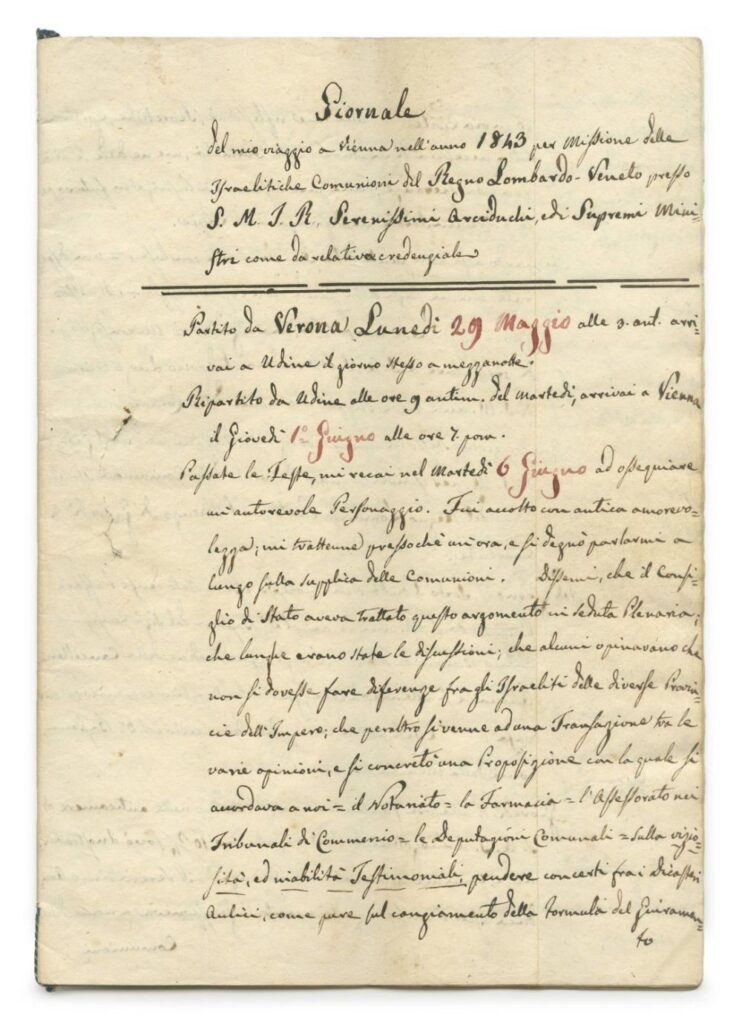 Giornale
del mio viaggio a Vienna nell'anno 1843 per Missione delle
Israelitiche Comunioni del Regno Lombardo-Veneto presso
S. M. I. R., Serenissimi Arciduchi, e di Supremi Mini-
stri come da relativa credenziale
Partito da Verona Lunedì 29 Maggio alle 3. ant. arri-
vai a Udine il giorno stesso a mezzanotte.
Ripartito da Udine alle ore 9 antim. del Martedì, arrivai a Vienna
il Giovedì 1º Giugno alle ore 7. pom.
Passate le Feste, mi recai nel Martedì 6 Giugno ad ossequiare
un'autorevole Personaggio. Fui accolto con antica amorevo-
lezza; mi trattenne pressochè un'ora, e si degnò parlarmi a
lungo sulla supplica delle Comunioni. Dissemi, che il Consi-
glio di Stato aveva trattato questo argomento in seduta Plenaria;
che lunghe erano state le discussioni; che alcuni opinavano che
non si dovesse fare diferenze fra gli Israeliti delle diverse Provin-
cie dell'Impero; che peraltro si venne ad una Transazione tra le
varie opinioni, e si concretò una Proposizione con la quale si
accordava a noi = il Notariato = la Farmacia = l'Assessorato nei
Tribunali di Commercio = le Deputazioni Comunali = sulla vizio-
sità, ed inabilità Testimoniali, pendere concerti fra i Dicasteri
Aulici, come pure sul cangiamento della formula del Giuramen-
to